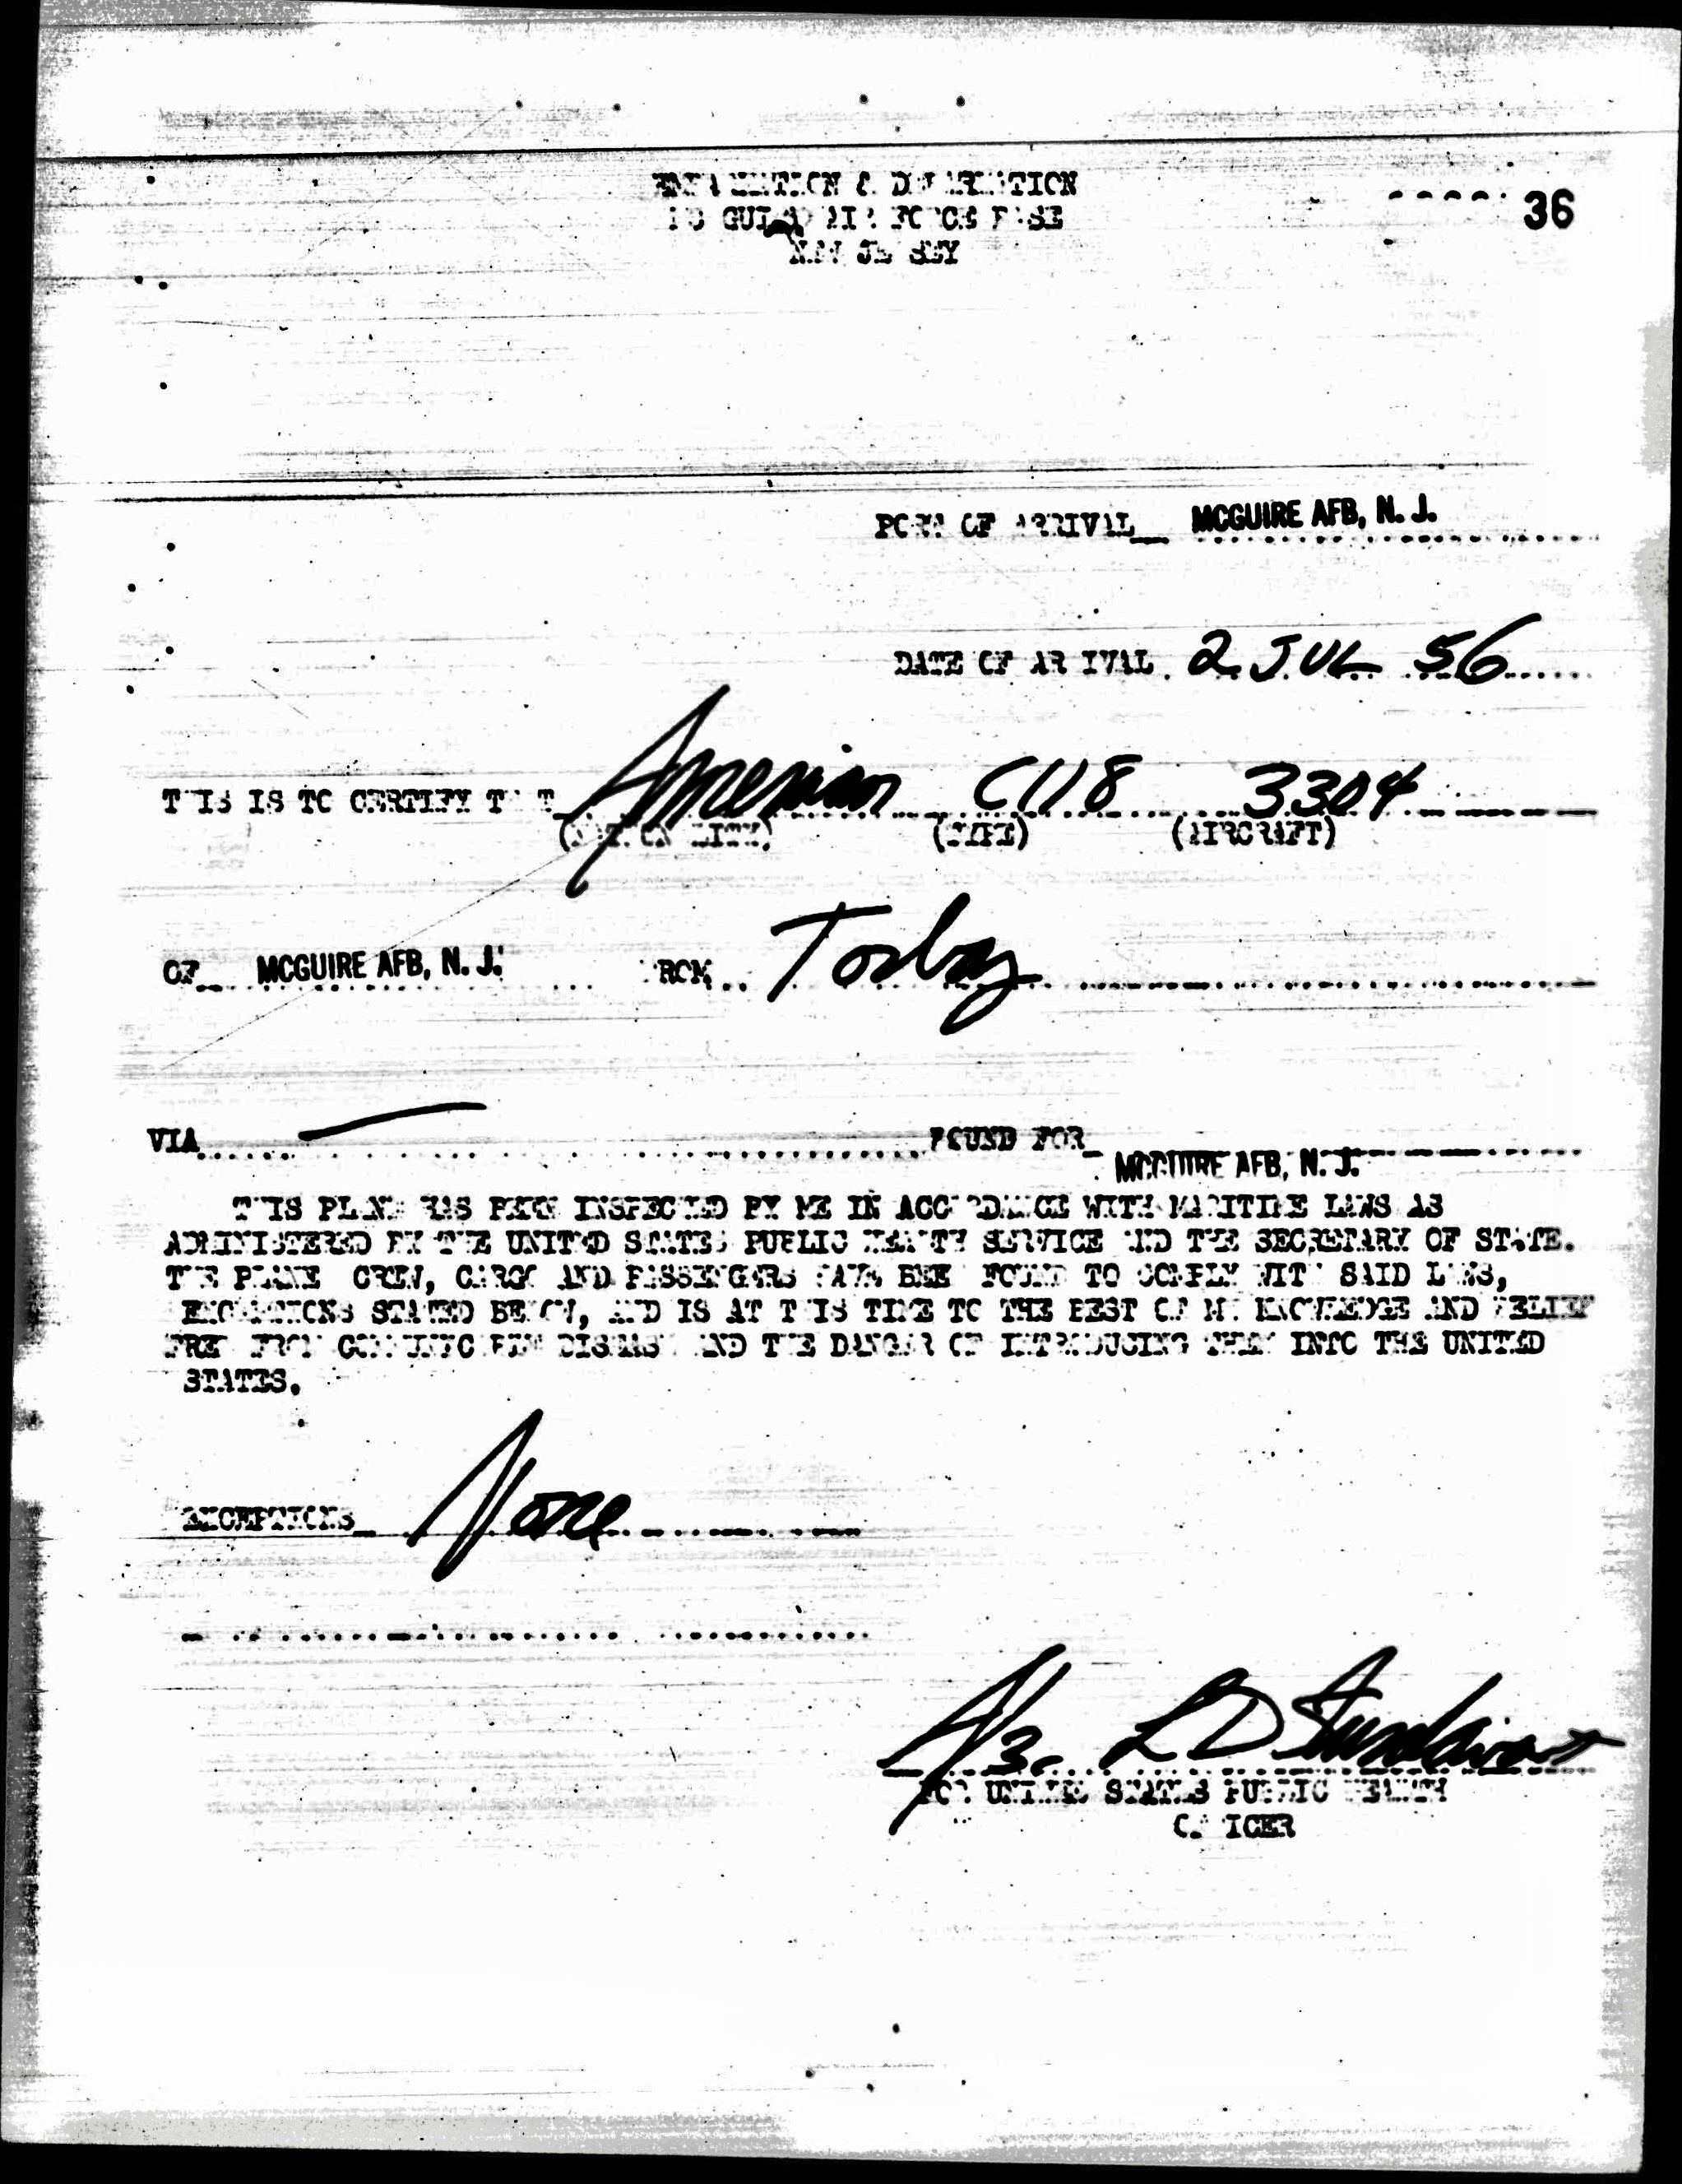 36
MCGUIRE AIR FORCE BASE
NEW JERSEY
PORT OF ARRIVAL MCGUIRE AFB, N. J.
DATE OF ARRIVAL 2 JUL 56
THIS IS TO CERTIFY THAT American C118 3304
(TYPE) (AIRCRAFT)
OF MCGUIRE AFB, N. J. FROM Torbay
VIA — BOUND FOR MCGUIRE AFB, N. J.
THIS PLANE HAS BEEN INSPECTED BY ME IN ACCORDANCE WITH MARITIME LAWS AS
ADMINISTERED BY THE UNITED STATES PUBLIC HEALTH SERVICE AND THE SECRETARY OF STATE.
THE PLANE CREW, CARGO AND PASSENGERS HAVE BEEN FOUND TO COMPLY WITH SAID LAWS,
EXCEPTIONS STATED BELOW, AND IS AT THIS TIME TO THE BEST OF MY KNOWLEDGE AND BELIEF
FREE FROM DISEASE AND THE DANGER OF INTRODUCING THEM INTO THE UNITED
STATES.
EXCEPTIONS None
A/3c L D
FOR UNITED STATES PUBLIC HEALTH
OFFICER